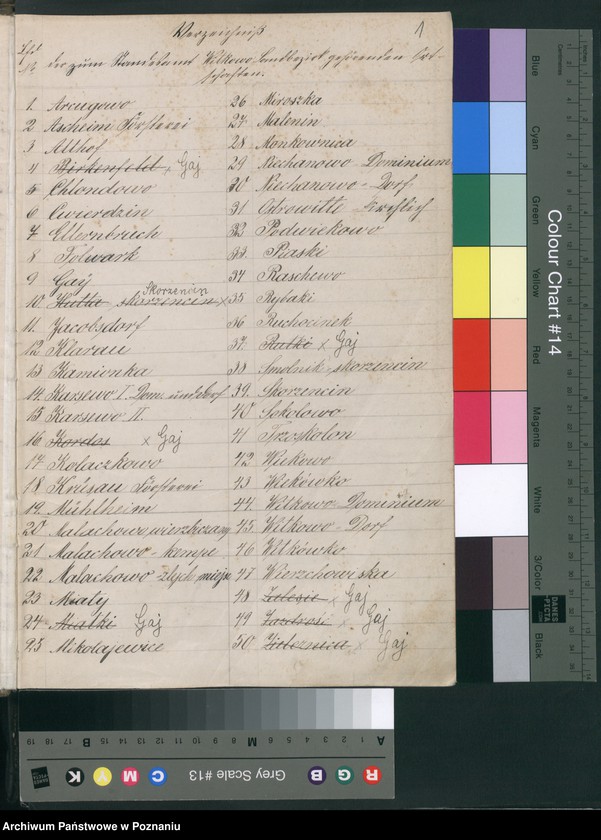 Verzeichniß
1
Lfd
№
der zum Standesamt Witkowo Landbezirk gehörenden Ort-
schaften.
1 Arcugowo
2 Ascheim Försterei
3 Althof
4 Birkenfeld x Gaj
5 Chlondowo
6 Cwierdzin
7 Ellernbruch
8 Folwark
9 Gay
Skorzencin
10 Hutta skorzencin x
11 Jacobsdorf
12 Klarau
13 Kamionka
14 Karsewo I. Dom. und Dorf
15 Karsewo II.
16 Kordos x Gaj
17 Kolaczkowo
18 Krüsau Försterei
19 Mühlheim
20 Malachowo wierzbiczany
21 Malachowo - kempe
22 Malachowo złych miejsc
23 Mialy
24 Gaj
25 Mikolajewice
26 Miroszka
27 Malenin
28 Monkownica
29 Niechanowo - Dominium
30 Niechanowo - Dorf
31 Ostrowitte
32 Podwiekowo
33 Piaski
34 Raschewo
35 Rybaki
36 Ruchocinek
37 Rutki x Gaj
38 Smolnik, skorzencin
39 Skorzencin
40 Sokolowo
41 Trzoskolon
42 Wiekowo
43 Wiekówko
44 Witkowo - Dominium
45 Witkowo - Dorf
46 Witkówko
47 Wierzchowiska
48 Zalesie x Gaj
49 Zazdrość x Gaj
50 Zieleznica x Gaj
Colour Chart #14
Blue
Cyan
Green
Yellow
Red
Magenta
White
3/Color
Black
Centimetres
Inches
DANES
PICTA
Grey Scale #13
A 1 2 3 4 5 6 M 8 9 10 11 12 13 14 15 B 17 18 19
R G B
C M Y K
Archiwum Państwowe w Poznaniu